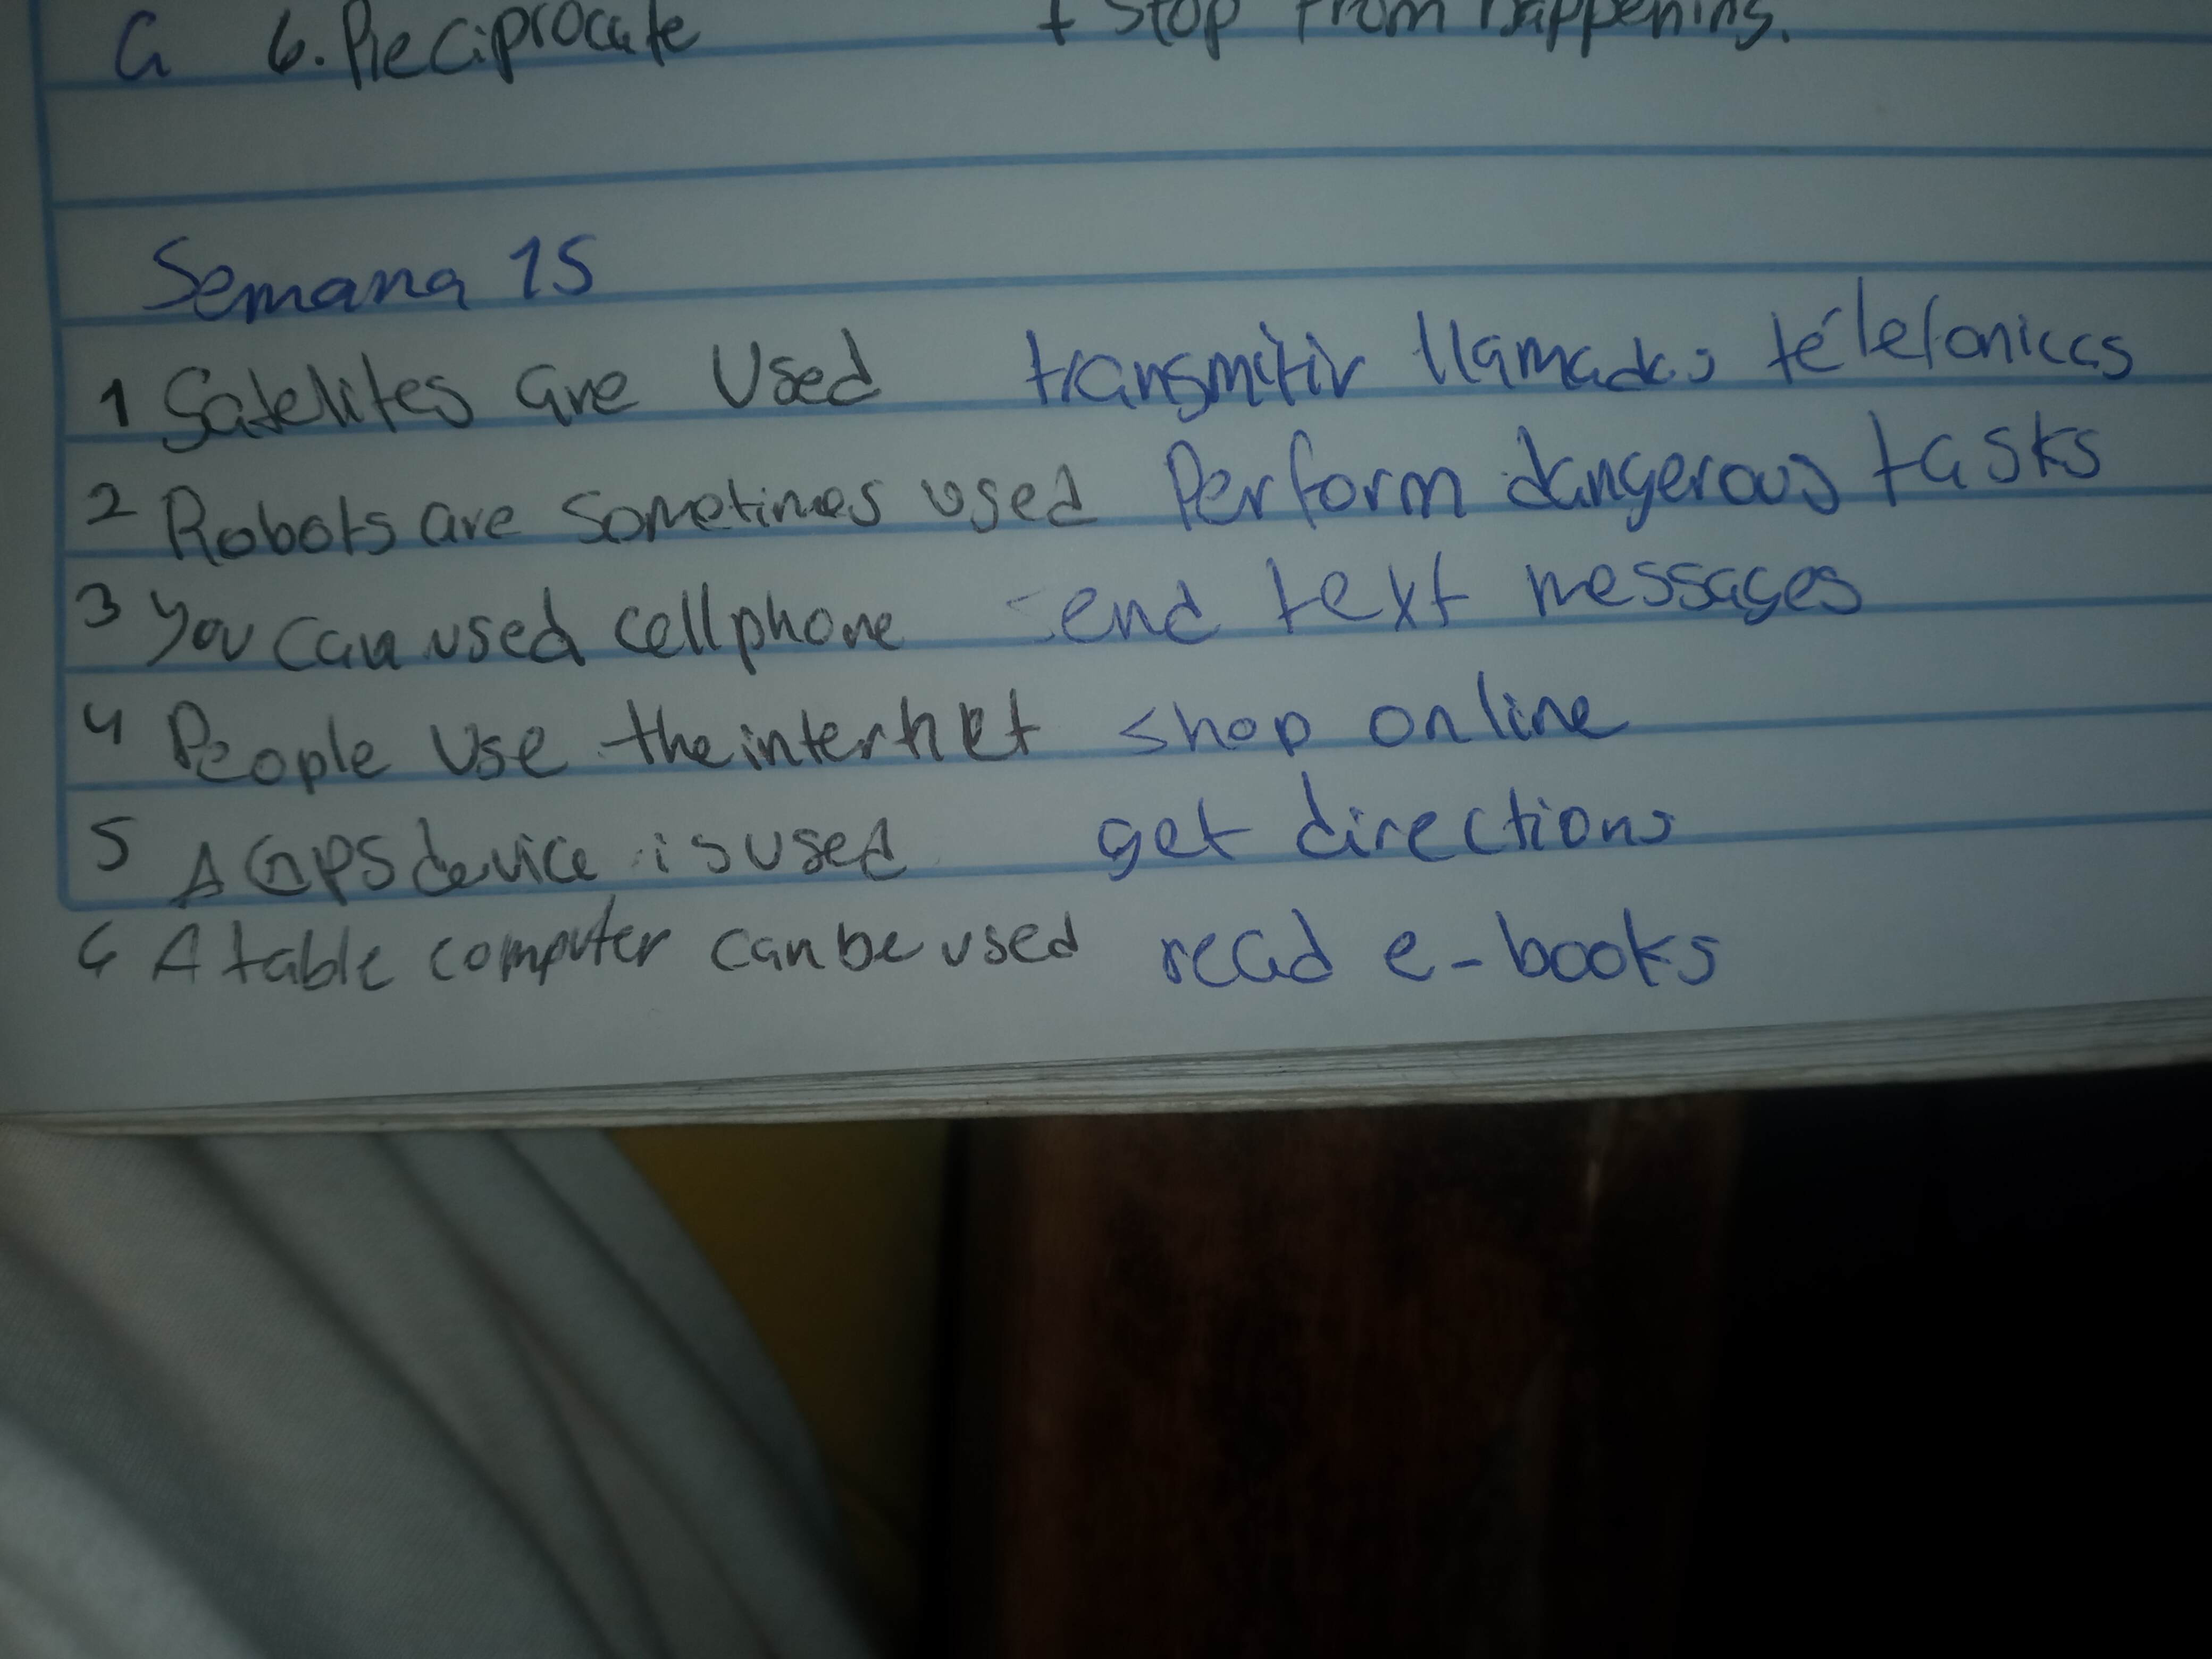 G 6. Reciprocate f Stop from happening.
Semana 15
1 Satelites are Used transmitir llamadas télefonicas
2 Robots are sometimes used Perform dangerous tasks
3 You can used cellphone send text messages
4 People Use the internet shop online
5 A GPS device is used get directions
6 A table computer can be used read e-books